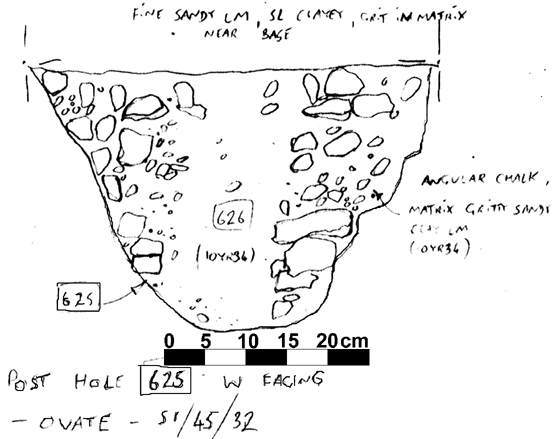 FINE SANDY LM, SL CLAYEY, GRIT IN MATRIX
NEAR BASE
ANGULAR CHALK,
MATRIX GRITTY SANDY
CLAY LM
(10YR34)
626
(10YR36)
625
0 5 10 15 20cm
POST HOLE 625 W FACING
- OVATE - 51/45/32